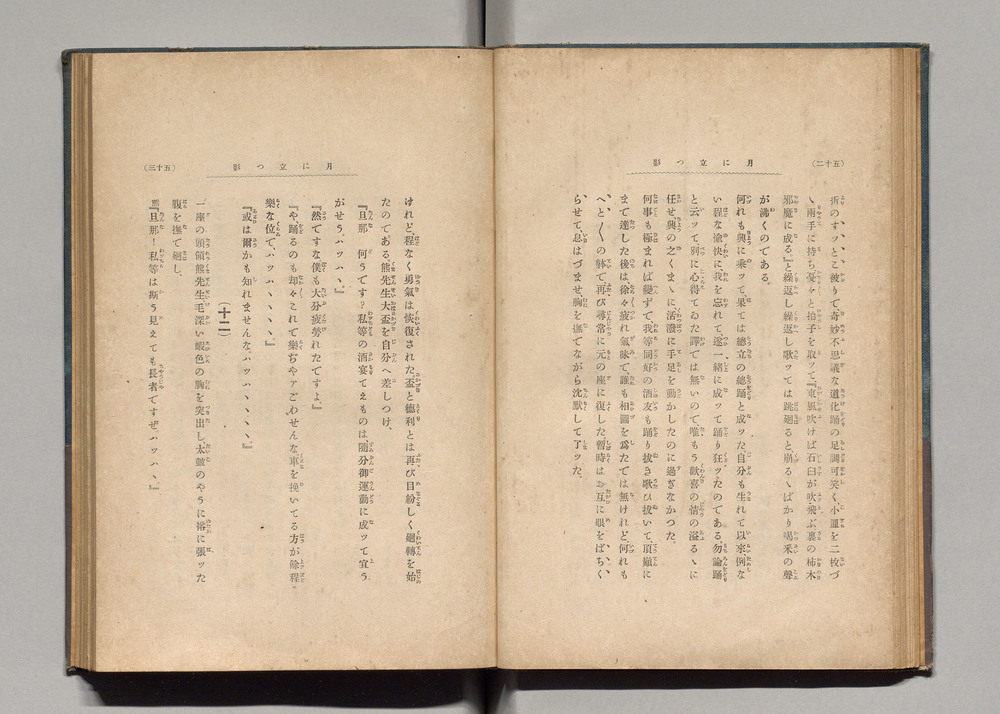 (五十二)
月に立つ影
折のすッ、とこ被りで奇妙不思議な道化踊の足調可笑く、小皿を二枚づ
ゝ兩手に持ち憂々と拍子を取ッて『東風吹けば石臼が吹飛ぶ裏の柿木
邪魔に成る』と繰返し繰返し歌ッては跳廻ると、崩るゝばかり喝釆の聲
が沸くのである。
何れも興に乘ッて、果ては總立の總踊と成ッた自分も生れて以來、例な
い程な愉快に我を忘れて、遂一緒に成ッて踊り狂ッたのである、勿論踊
と云ッて、別に心得てゐた譯では無いので、唯もう歡喜の情の溢るゝに
任せ興の之くまゝに活潑に手足を動かしたのに過ぎなかつた。
何事も極まれば變ずで我等同好の酒友も踊り拔き歌ひ拔いて、頂巓に
まで達した後は、徐々疲れ氣味で、誰も相圖を爲たでは無けれど、何れも
へと〱の躰で再び尋常に元の座に復した、暫時はお互に眼をぱちく
らせて、息はづませ、胸を撫でながら沈默して了ッた。
月に立つ影
(五十三)
けれど、程なく勇氣は恢復された、盃と德利とは再び目紛しく廻轉を始
たのである、熊先生大盃を自分へ差しつけ、
『旦那　何うです?私等の酒宴てえものは、隨分御運動に成ッて宜う
がせう、ハッハヽ』
『然ですな僕も大分疲勞れたですよ。』
『や、踊るのも却々これで樂ぢやアごわせんな、車を挽いてる方が餘程
樂な位で、ハッハヽヽヽヽ。』
『或は爾かも知れませんな、ハッハヽヽヽヽ』
(十二)
一座の頭領熊先生毛深い蝦色の胸を突出し、太皷のやうに裕に張ッた
腹を撫で廻し、
『旦那!私等は斯う見えても長者ですぜ、ハッハヽ』